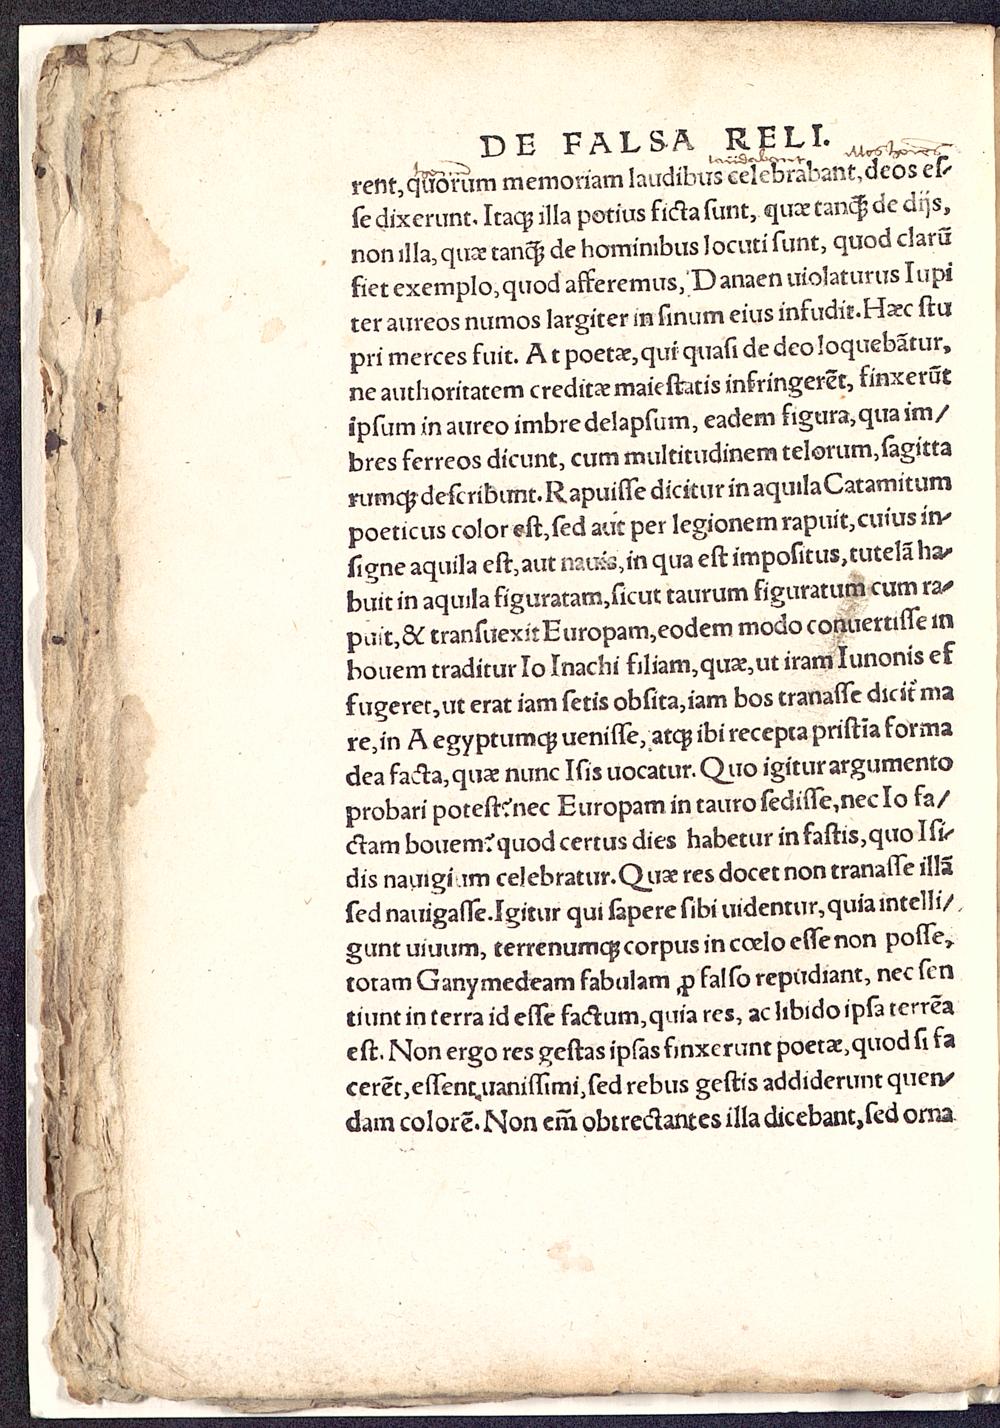 DE FALSA RELI.
laudabant
rent, quorum memoriam laudibus celebrabant, deos eſ-
ſe dixerunt. Itaqꝫ illa potius ficta ſunt, quæ tanqꝫ̃ de dijs,
non illa, quæ tanqꝫ̃ de hominibus locuti ſunt, quod clarũ
fiet exemplo, quod afferemus, Danaen uiolaturus Iupi
ter aureos numos largiter in ſinum eius infudit. Hæc ſtu
pri merces fuit. At poetæ, qui quaſi de deo loquebãtur,
ne authoritatem creditæ maieſtatis infringerẽt, finxerũt
ipſum in aureo imbre delapſum, eadem figura, qua im/
bres ferreos dicunt, cum multitudinem telorum, ſagitta
rumqꝫ deſcribunt. Rapuiſſe dicitur in aquila Catamitum
poeticus color eſt, ſed aut per legionem rapuit, cuius in-
ſigne aquila eſt, aut nauis, in qua eſt impoſitus, tutelã ha-
buit in aquila figuratam, ſicut taurum figuratum cum ra-
puit, & tranſuexit Europam, eodem modo conuertiſſe in
bouem traditur Io Inachi filiam, quæ, ut iram Iunonis ef
fugeret, ut erat iam ſetis obſita, iam bos tranaſſe dicit᷑ ma
re, in Aegyptumqꝫ ueniſſe, atqꝫ ibi recepta priſtĩa forma
dea facta, quæ nunc Iſis uocatur. Quo igitur argumento
probari poteſt? nec Europam in tauro ſediſſe, nec Io fa/
ctam bouem? quod certus dies habetur in faſtis, quo Iſi-
dis nauigium celebratur. Quæ res docet non tranaſſe illã
ſed nauigaſſe. Igitur qui ſapere ſibi uidentur, quia intelli/
gunt uiuum, terrenumqꝫ corpus in cœlo eſſe non poſſe,
totam Ganymedeam fabulam ꝓ falſo repudiant, nec ſen
tiunt in terra id eſſe factum, quia res, ac libido ipſa terrẽa
eſt. Non ergo res geſtas ipſas finxerunt poetæ, quod ſi fa
cerẽt, eſſent uaniſſimi, ſed rebus geſtis addiderunt quen-
dam colorẽ. Non em̃ obtrectantes illa dicebant, ſed orna